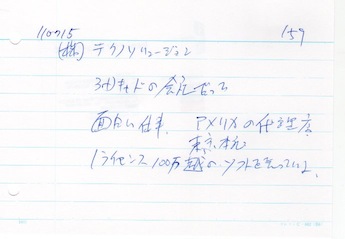 110715
159
(株) テクノソリューション
3dキャドの会社だって
面白い仕事. アメリカの代理店
東京本元
1ライセンス100万越のソフトを売っている。